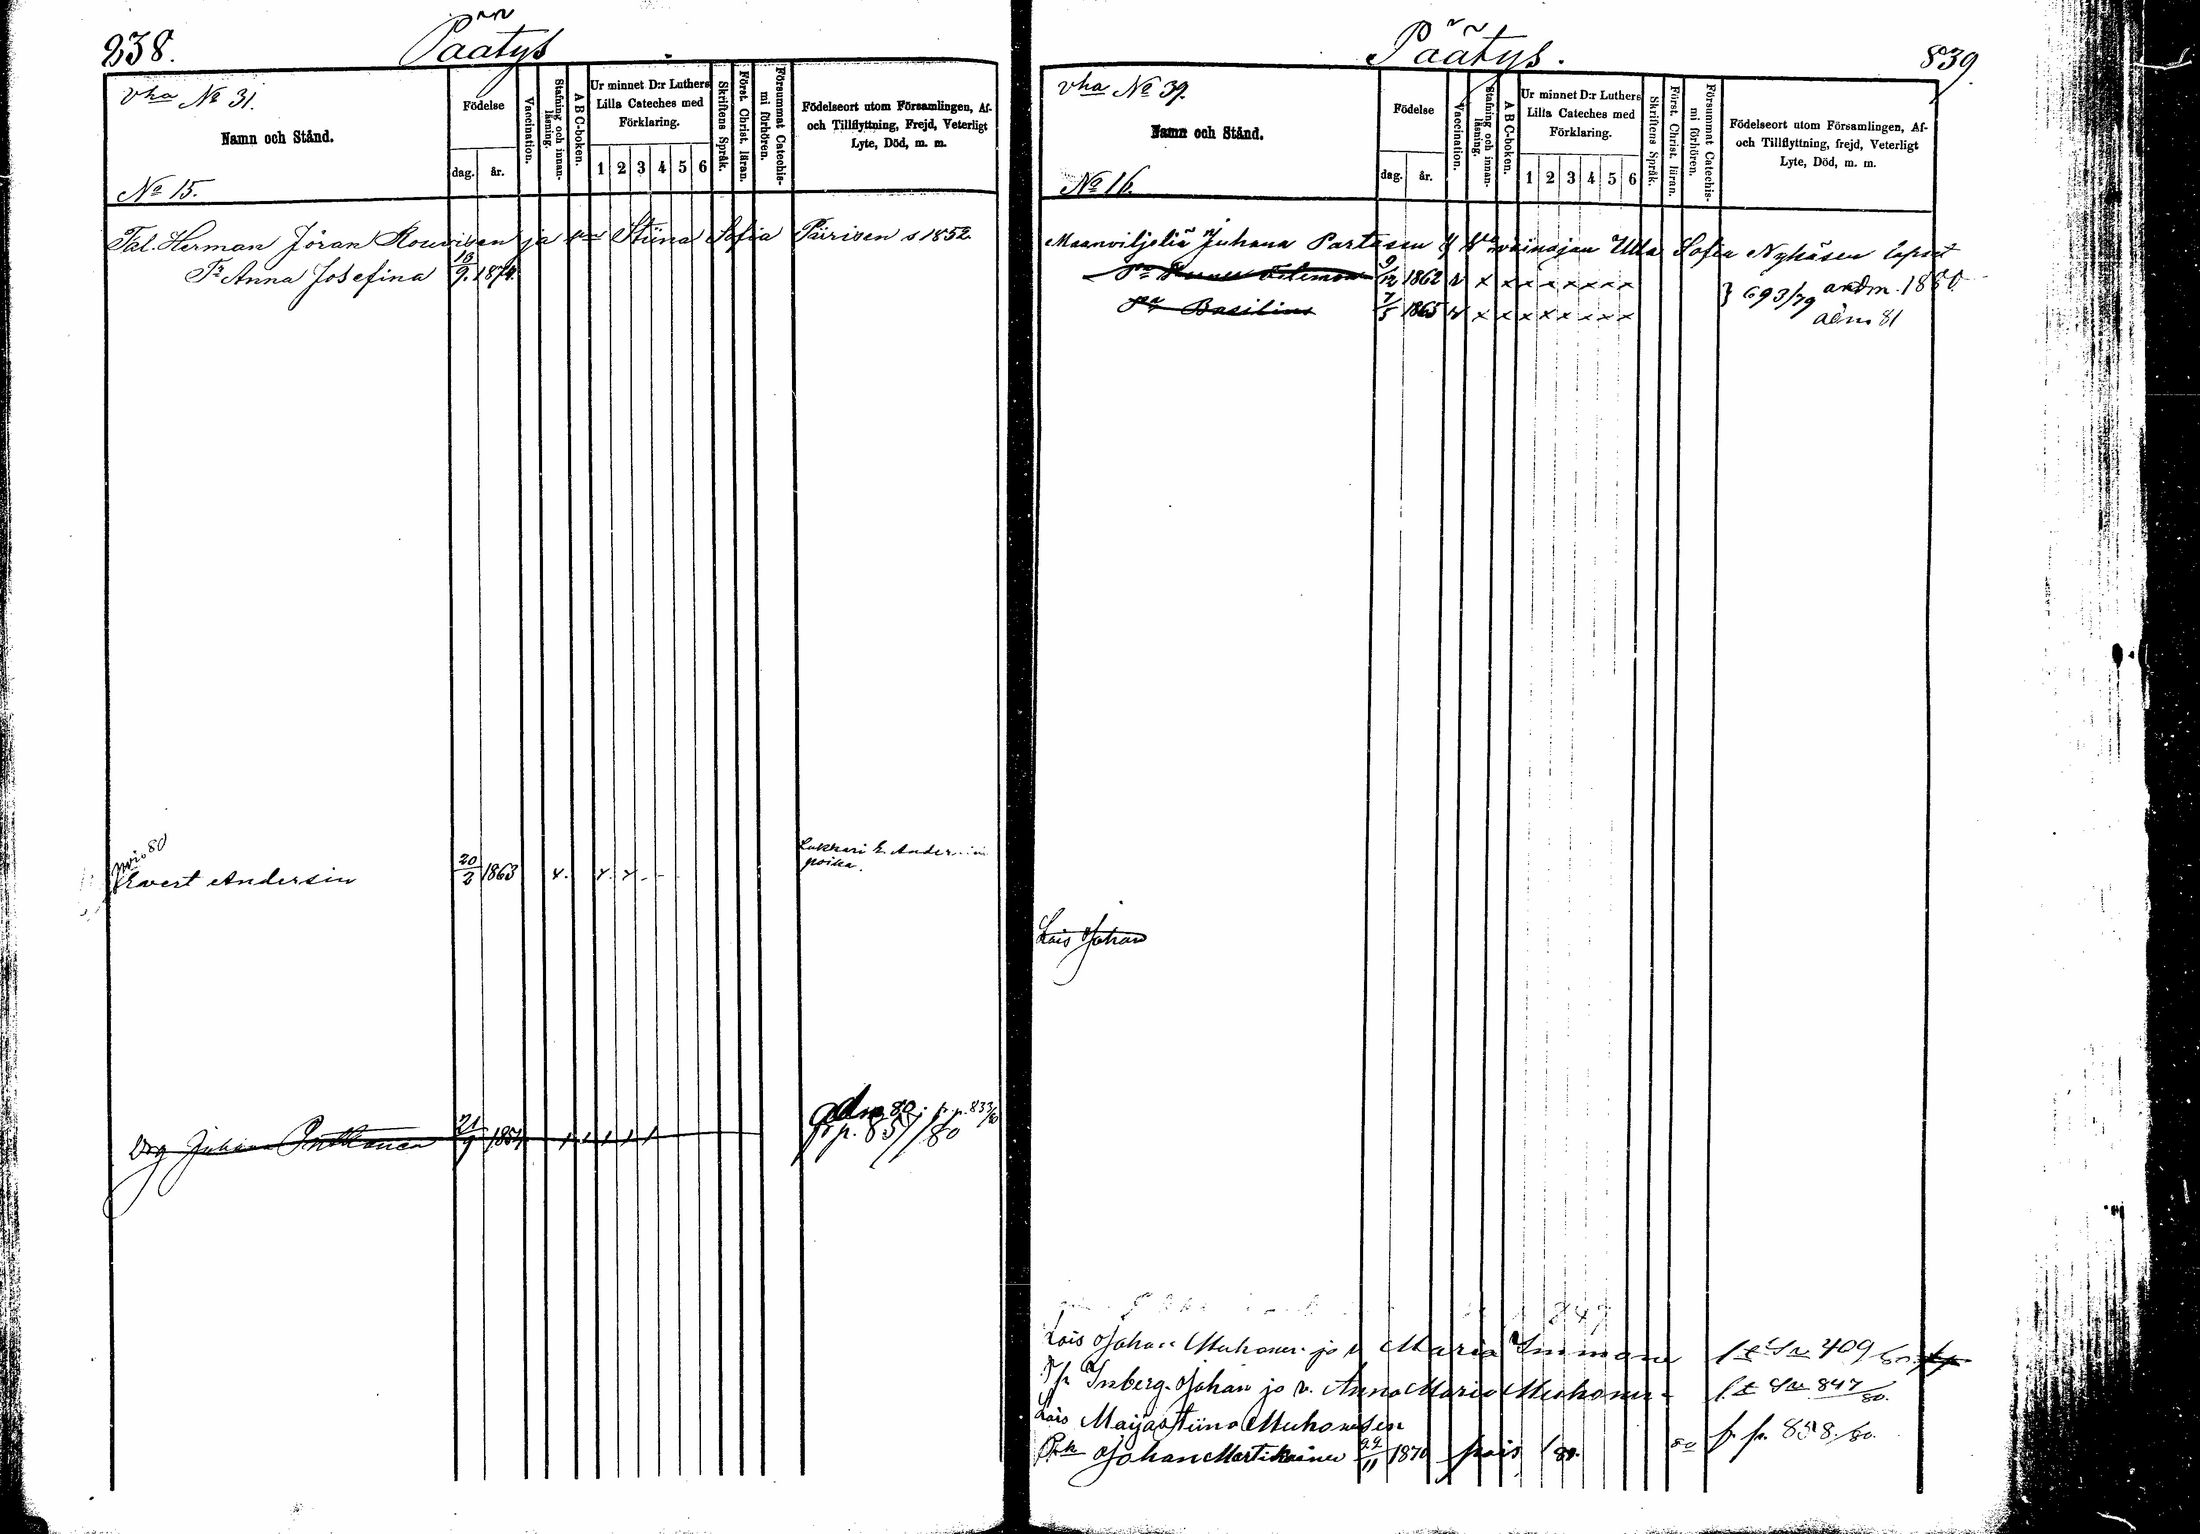 238.
Päätys
vha No 31.
Namn och Stånd.
No 15.
Födelse
dag.
år.
Vaccination.
Stafning och innan-
läsning.
A B C-boken.
Ur minnet D:r Luthers
Lilla Cateches med
Förklaring.
1 2 3 4 5 6
Skriftens Språk.
Först. Christ. läran.
Försummat Catechis-
mi förhören.
Födelseort utom Församlingen, Af-
och Tillflyttning, Frejd, Veterligt
Lyte, Död, m. m.
Tal. Herman Jöran Rouvinen ja Stiina Sofia Päirisen s 1852.
Tr Anna Josefina 13/9. 1874.
Evert Andersin 20/2 1863 x. x. x
Lukkari E. Andersin
poika.
Johan 21/9
p. 833/80
p. 857/80
Päätys.
839
vha No 39.
Namn och Stånd.
No 16.
Födelse
dag.
år.
Vaccination.
Stafning och innan-
läsning.
A B C-boken.
Ur minnet D:r Luthers
Lilla Cateches med
Förklaring.
1 2 3 4 5 6
Skriftens Språk.
Först. Christ. läran.
Försummat Catechis-
mi förhören.
Födelseort utom Församlingen, Af-
och Tillflyttning, frejd, Veterligt
Lyte, Död, m. m.
Maanviljeliä Juhana Partasen Ulla Sofia Nykäsen lapset
9/12 1862 v x x x x x x x x
693/79 andm. 1880.
Pa Basilius 7/5 1865 v x x x x x x x x
adm 81
Lois Johan
847
Lois Johan Muhonen jo v Maria Immonen 409
Inberg. Johan jo v. Anna Maria Muhonen 847/80.
Lois Maija Stiina Muhonen
Johan Martikainen 22/11 1870 80. p. 858./80.